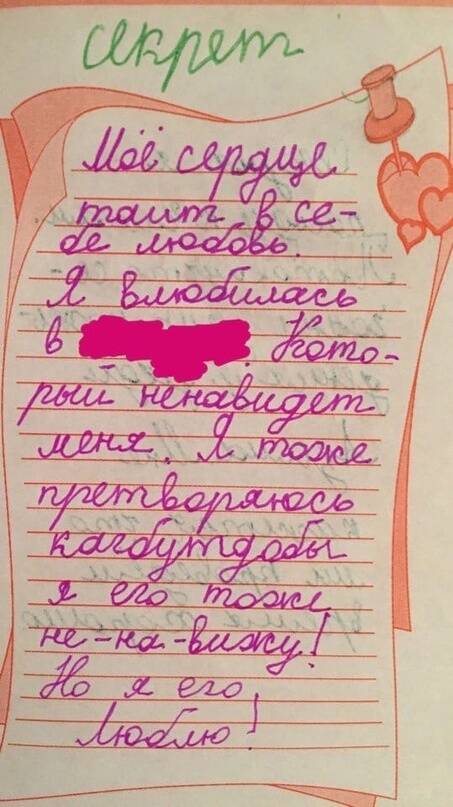 секрет
Моё сердце
таит в се-
бе любовь.
Я влюбилась
в . Кото-
рый ненавидет
меня. Я тоже
претворяюсь
кагбутдобы
я его тоже
не-на-вижу!
Но я его
Люблю!